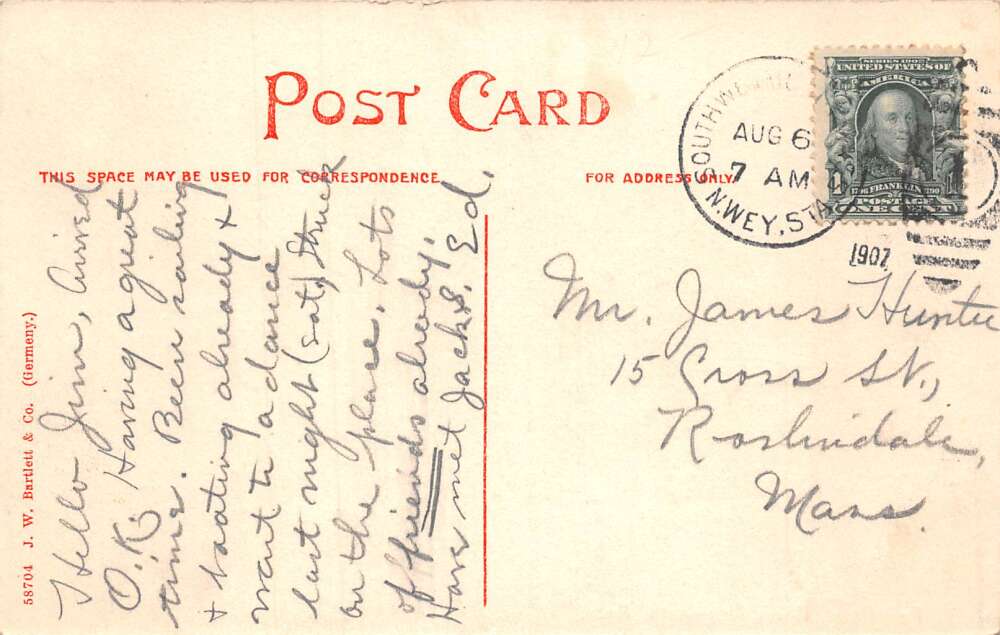 POST CARD
THIS SPACE MAY BE USED FOR CORRESPONDENCE
FOR ADDRESS ONLY.
Hello Jim, Arived
O.K. Having a great
time. Been sailing
+ boating already +
want to a dance
last night (sat) Struck
on the place. Lots
of friends already.
Have met Jack S. Ed.
58704 J. W. Bartlett & Co. (Germeny.)
AUG 6
7 AM
N.WEY. STA
1907
SERIES 1902
UNITED STATES OF
AMERICA
1706 FRANKLIN 1790
POSTAGE
ONE CENT
Mr. James Hunter
15 Cross St.,
Roslindale,
Mass.